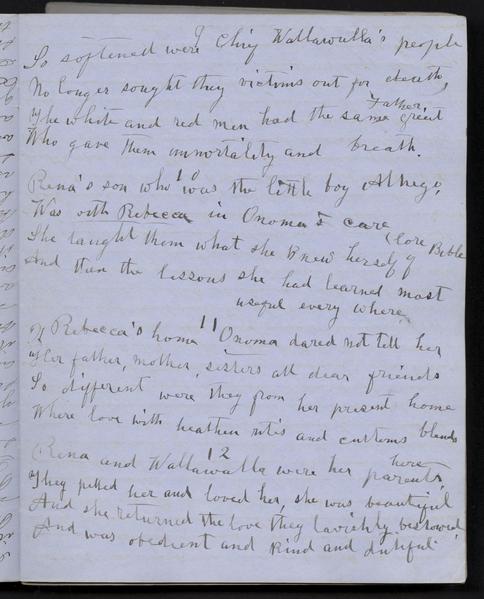 9
So softened were Chief Wallawulla's people
No longer sought they victims out for death,
The white and red men had the same great
Father
Who gave them immortality and breath.
10
Rena's son who was the little boy
Was with Rebecca in Onoma's care
She taught them what she knew herself of
Bible
And then the lessons she had learned most
useful every where,
11
Of Rebecca's home Onoma dared not tell her
Her father, mother, sisters all dear friends
So different were they from her present home
Where love with heathen rites and customs blends
12
Rena and Wallawalla were her parents,
here
They petted her and loved her, she was beautiful
And she returned the love they lavishly bestowed,
And was obedient and kind and dutiful